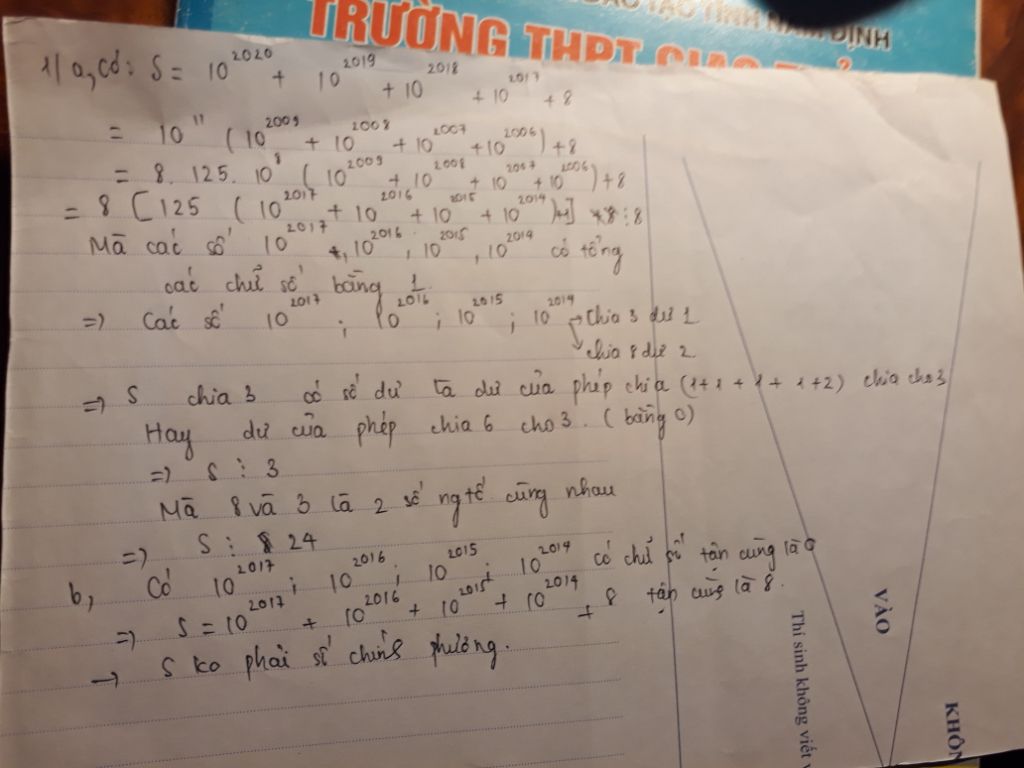 TẠO TỈNH NAM ĐỊNH
TRƯỜNG THPT GIAO
1) a, Có: S = 10^2020 + 10^2019 + 10^2018 + 10^2017 + 8
= 10^11 (10^2009 + 10^2008 + 10^2007 + 10^2006) + 8
= 8. 125. 10^8 (10^2009 + 10^2008 + 10^2007 + 10^2006) + 8
= 8 [125 (10^2017 + 10^2016 + 10^2015 + 10^2014) +1] ⋮ 8
Mà các số 10^2017, 10^2016, 10^2015, 10^2014 có tổng
các chữ số bằng 1
=> Các số 10^2017 ; 10^2016 ; 10^2015 ; 10^2014 chia 3 dư 1
chia 8 dư 2
=> S chia 3 có số dư là dư của phép chia (1+1+1+1+2) chia cho 3
Hay dư của phép chia 6 cho 3. (bằng 0)
=> S ⋮ 3
Mà 8 và 3 là 2 số ngtố cùng nhau
=> S ⋮ 24
b, Có 10^2017 ; 10^2016 ; 10^2015 ; 10^2014 có chữ số tận cùng là 0
=> S = 10^2017 + 10^2016 + 10^2015 + 10^2014 + 8 tận cùng là 8.
→ S ko phải số chính phương.
VÀO
Thí sinh không viết
KHÔN